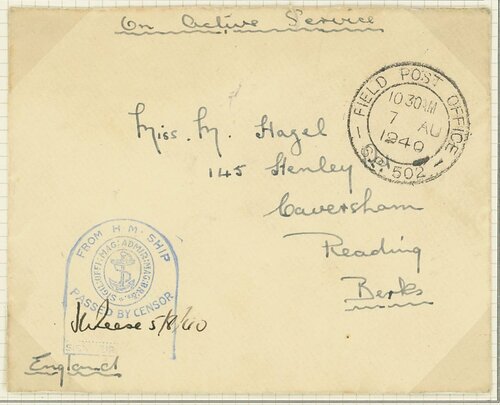 On Active Service
FIELD POST OFFICE
10 30 AM
7 AU
1940
502
Miss. M. Hagel
145 Henley
Caversham
Reading
Berks
FROM H.M. SHIP
PASSED BY CENSOR
5/8/40
England